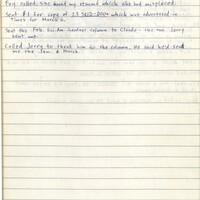 Pay called. She found my resumé which she had misplaced.
Sent $1 for copy of which was advertised in
Times for March 2.
Sent this Feb. Sci Am Gardner column to Claude - the one Jerry
sent out.
Called Jerry to thank him for the column. He said he'd send
me the Jan. & March.